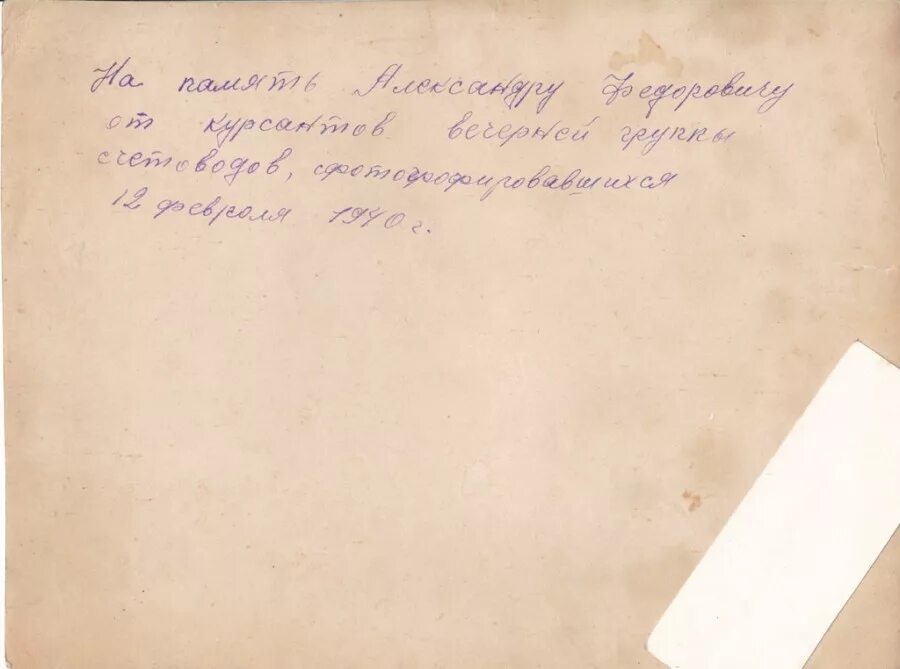 На память Александру Федоровичу
от курсантов вечерней группы
счетоводов, сфотографировавшихся
12 февраля 1940 г.